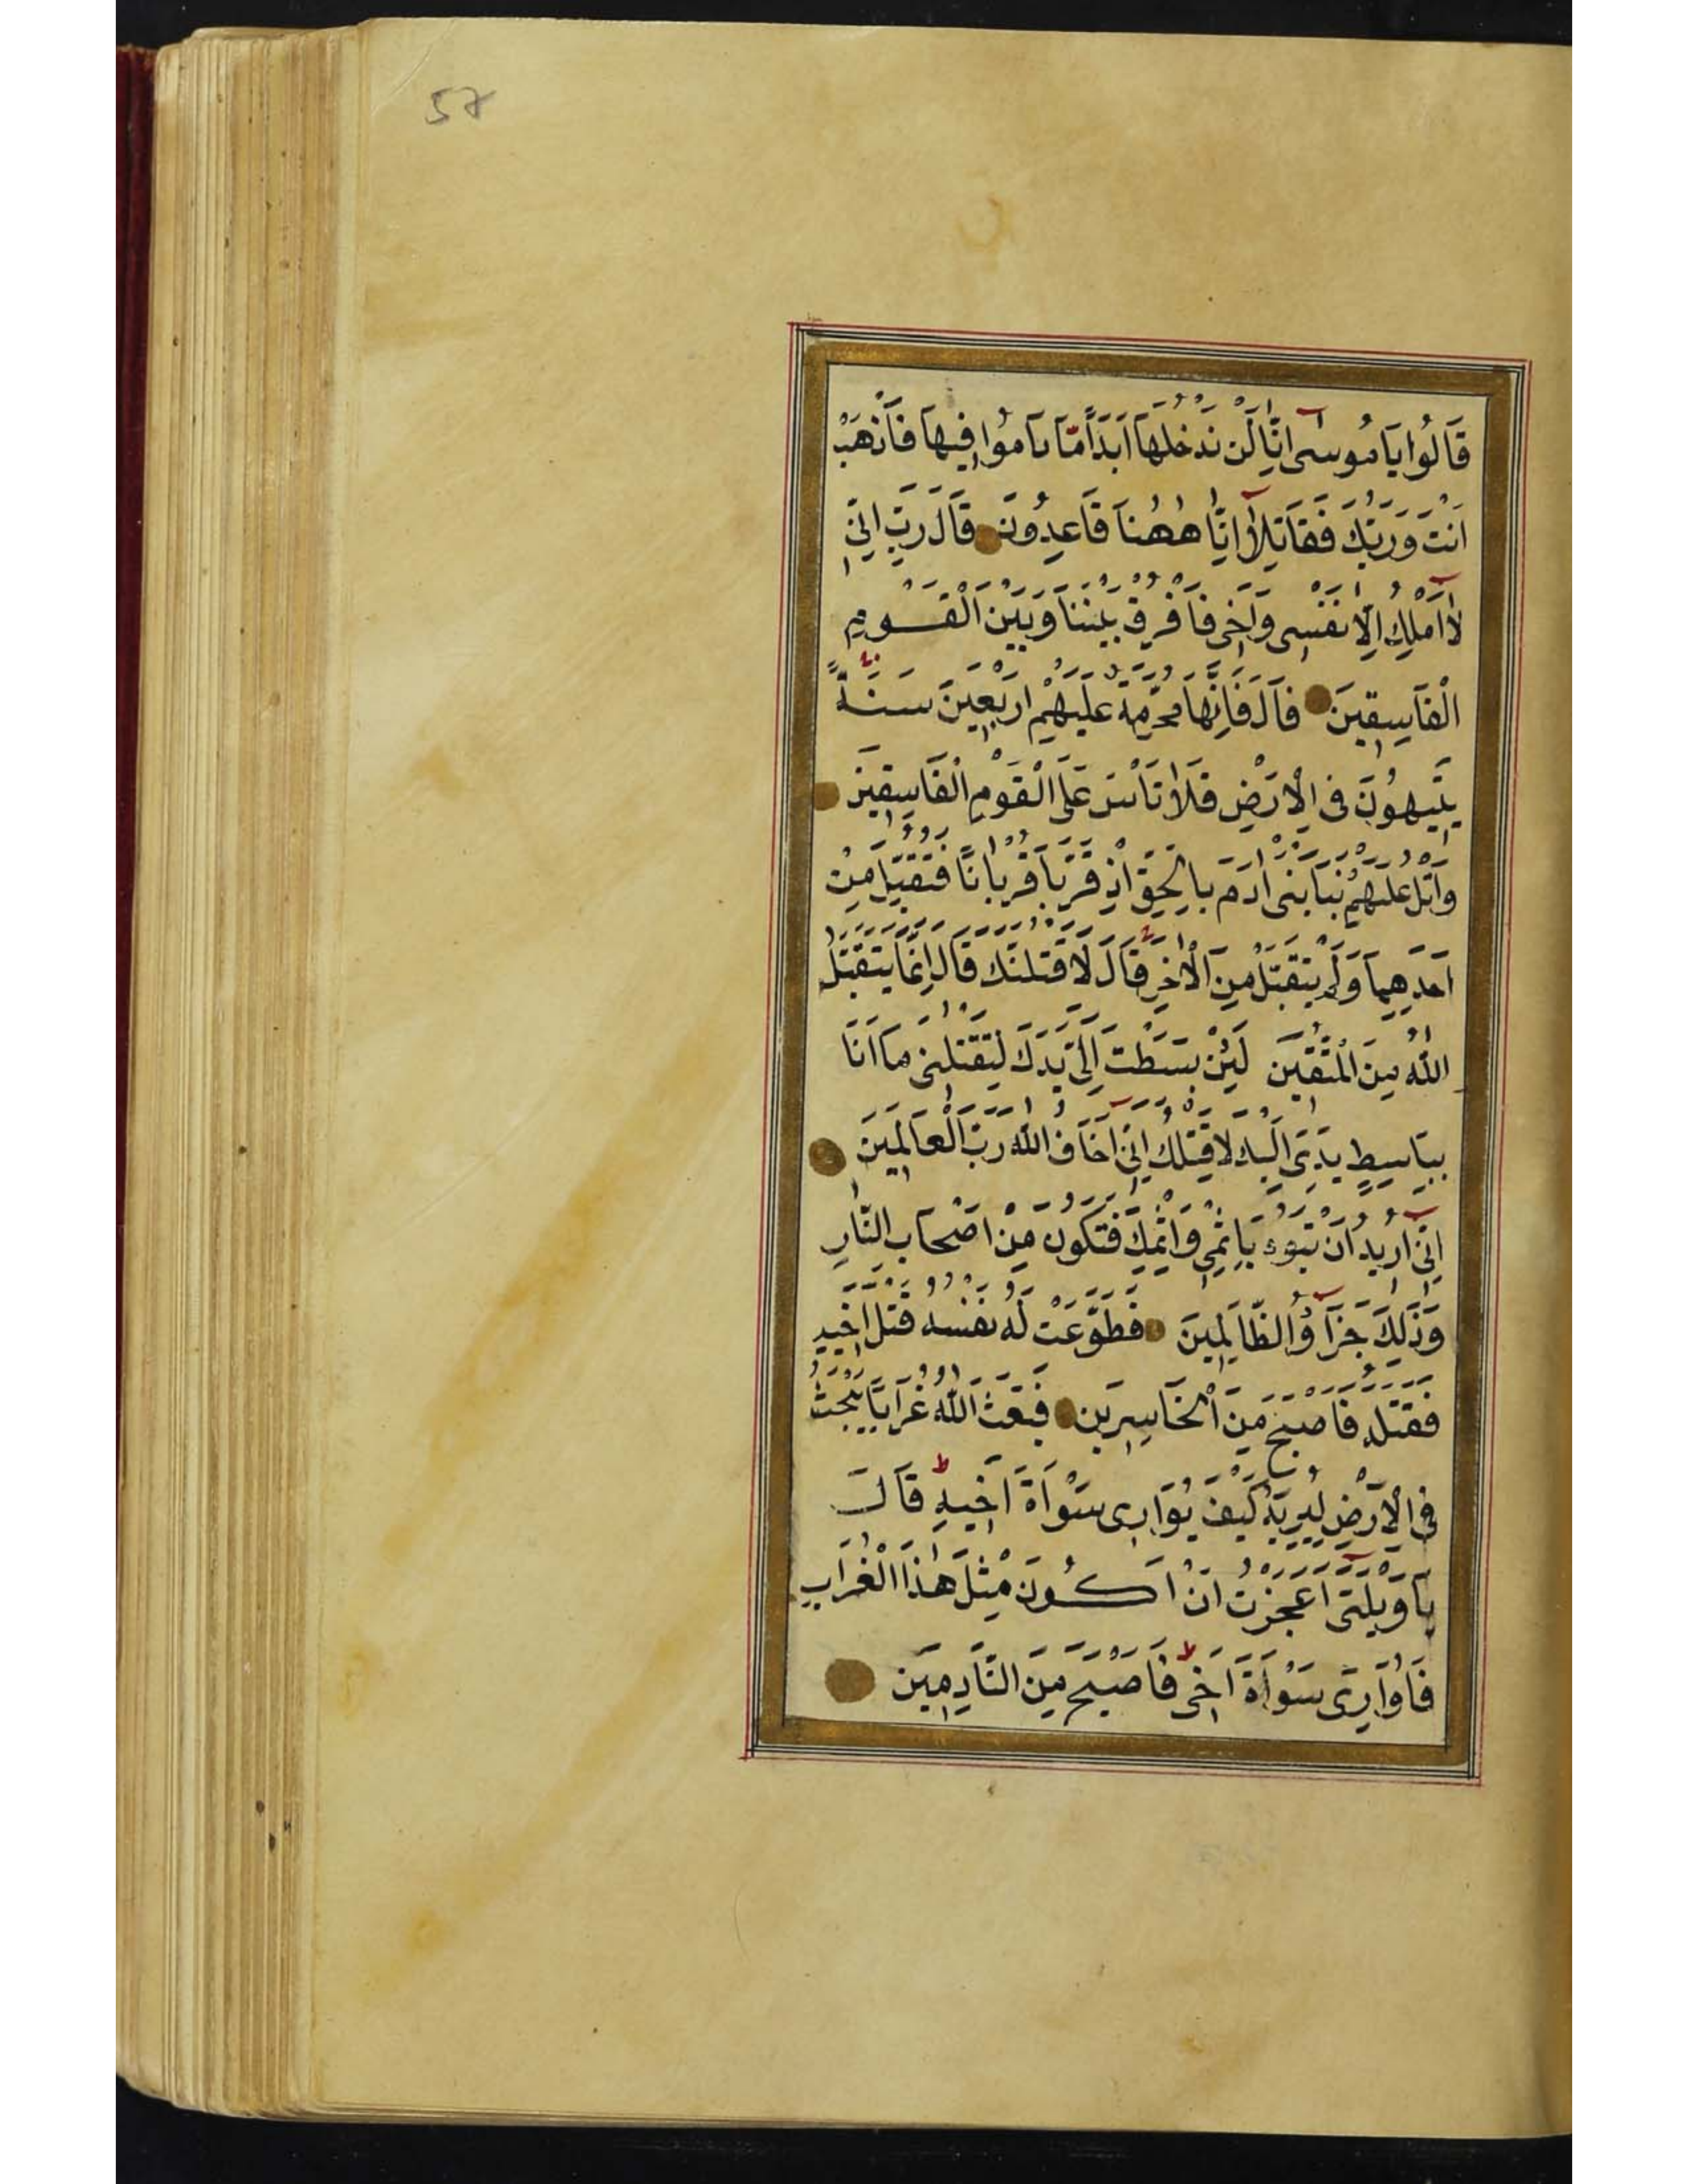 57
قَالُوا يَا مُوسٰى اِنَّا لَنْ نَدْخُلَهَا اَبَدًا مَا دَامُوا فِيهَا فَاذْهَبْ
اَنْتَ وَرَبُّكَ فَقَاتِلَا اِنَّا هٰهُنَا قَاعِدُونَ قَالَ رَبِّ اِنِّي
لَا اَمْلِكُ اِلَّا نَفْسِى وَاَخِى فَافْرُقْ بَيْنَنَا وَبَيْنَ الْقَوْمِ
الْفَاسِقِينَ قَالَ فَاِنَّهَا مُحَرَّمَةٌ عَلَيْهِمْ اَرْبَعِينَ سَنَةً
يَتِيهُونَ فِى الْاَرْضِ فَلَا تَاْسَ عَلَى الْقَوْمِ الْفَاسِقِينَ
وَاتْلُ عَلَيْهِمْ نَبَاَ ابْنَىْ اٰدَمَ بِالْحَقِّ اِذْ قَرَّبَا قُرْبَانًا فَتُقُبِّلَ مِنْ
اَحَدِهِمَا وَلَمْ يُتَقَبَّلْ مِنَ الْاٰخَرِ قَالَ لَاَقْتُلَنَّكَ قَالَ اِنَّمَا يَتَقَبَّلُ
اللّٰهُ مِنَ الْمُتَّقِينَ لَئِنْ بَسَطْتَ اِلَىَّ يَدَكَ لِتَقْتُلَنِى مَا اَنَا
بِبَاسِطٍ يَدِىَ اِلَيْكَ لِاَقْتُلَكَ اِنِّى اَخَافُ اللّٰهَ رَبَّ الْعَالَمِينَ
اِنِّى اُرِيدُ اَنْ تَبُوءَ بِاِثْمِى وَاِثْمِكَ فَتَكُونَ مِنْ اَصْحَابِ النَّارِ
وَذٰلِكَ جَزَآؤُ الظَّالِمِينَ فَطَوَّعَتْ لَهُ نَفْسُهُ قَتْلَ اَخِيهِ
فَقَتَلَهُ فَاَصْبَحَ مِنَ الْخَاسِرِينَ فَبَعَثَ اللّٰهُ غُرَابًا يَبْحَثُ
فِى الْاَرْضِ لِيُرِيَهُ كَيْفَ يُوَارِى سَوْاَةَ اَخِيهِ قَالَ
يَا وَيْلَتٰى اَعَجَزْتُ اَنْ اَكُونَ مِثْلَ هٰذَا الْغُرَابِ
فَاُوَارِىَ سَوْاَةَ اَخِى فَاَصْبَحَ مِنَ النَّادِمِينَ